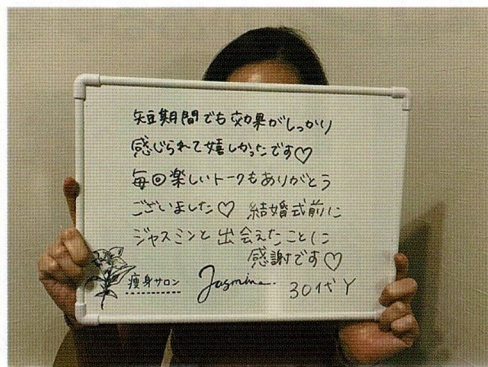 短期間でも効果がしっかり
感じられて嬉しかったです♡
毎回楽しいトークもありがとう
ございました♡ 結婚式前に
ジャスミンと出会えたことに
感謝です♡
痩身サロン Jasmine. 30代Y